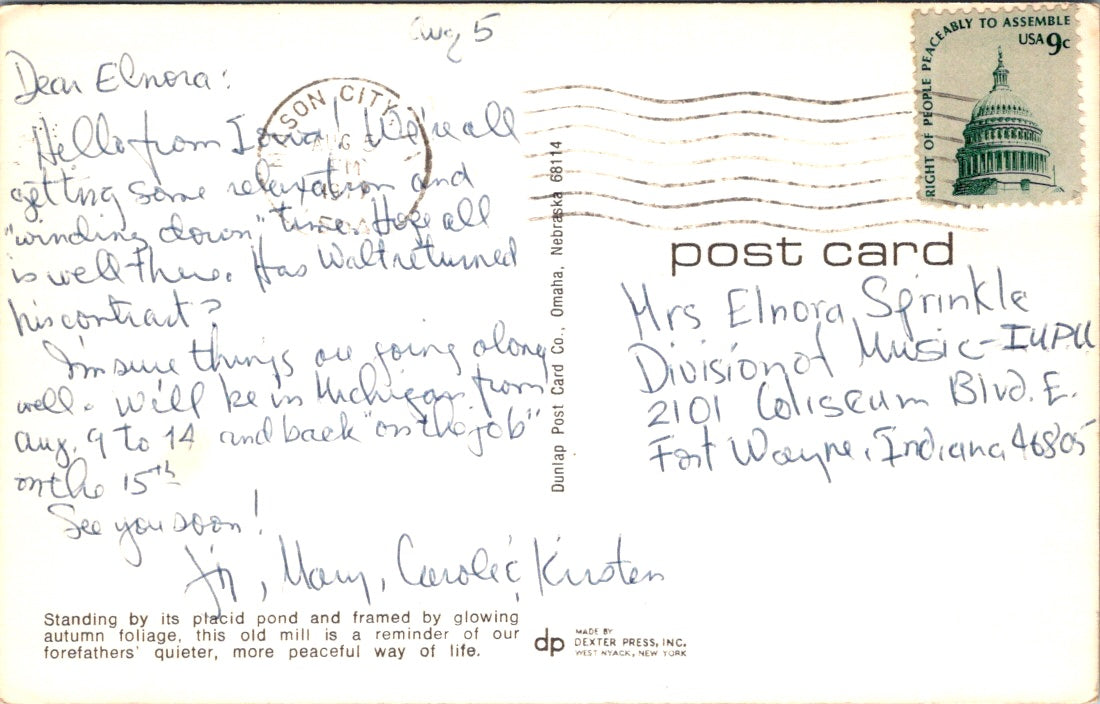 Aug 5
Dear Elnora:
Hello from Iowa! We're all
getting some relaxation and
"winding down" time. Hope all
is well there. Has Walt returned
his contract?
I'm sure things are going along
well. We'll be in Michigan from
Aug. 9 to 14 and back "on the job"
on the 15th
See you soon!
Mary, Carole & Kirsten
Standing by its placid pond and framed by glowing
autumn foliage, this old mill is a reminder of our
forefathers' quieter, more peaceful way of life.
SON CITY
AUG
Dunlap Post Card Co., Omaha, Nebraska 68114
dp
MADE BY
DEXTER PRESS, INC.
WEST NYACK, NEW YORK
RIGHT OF PEOPLE PEACEABLY TO ASSEMBLE
USA 9c
post card
Mrs Elnora Sprinkle
Division of Music-IUPU
2101 Coliseum Blvd. E.
Fort Wayne, Indiana 46805